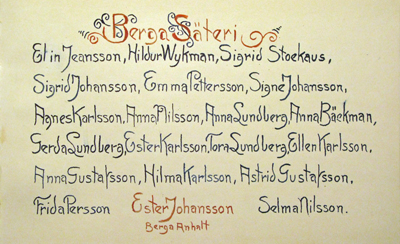 Berga Säteri
Elin Jeansson, Hildur Wykman, Sigrid Stockaus,
Sigrid Johansson, Emma Pettersson, Signe Johansson,
Agnes Karlsson, Anna Nilsson, Anna Lundberg, Anna Bäckman,
Gerda Lundberg, Ester Karlsson, Tora Lundberg, Ellen Karlsson,
Anna Gustafsson, Hilma Karlsson, Astrid Gustafsson,
Frida Persson Ester Johansson Selma Nilsson.
Berga Anhalt